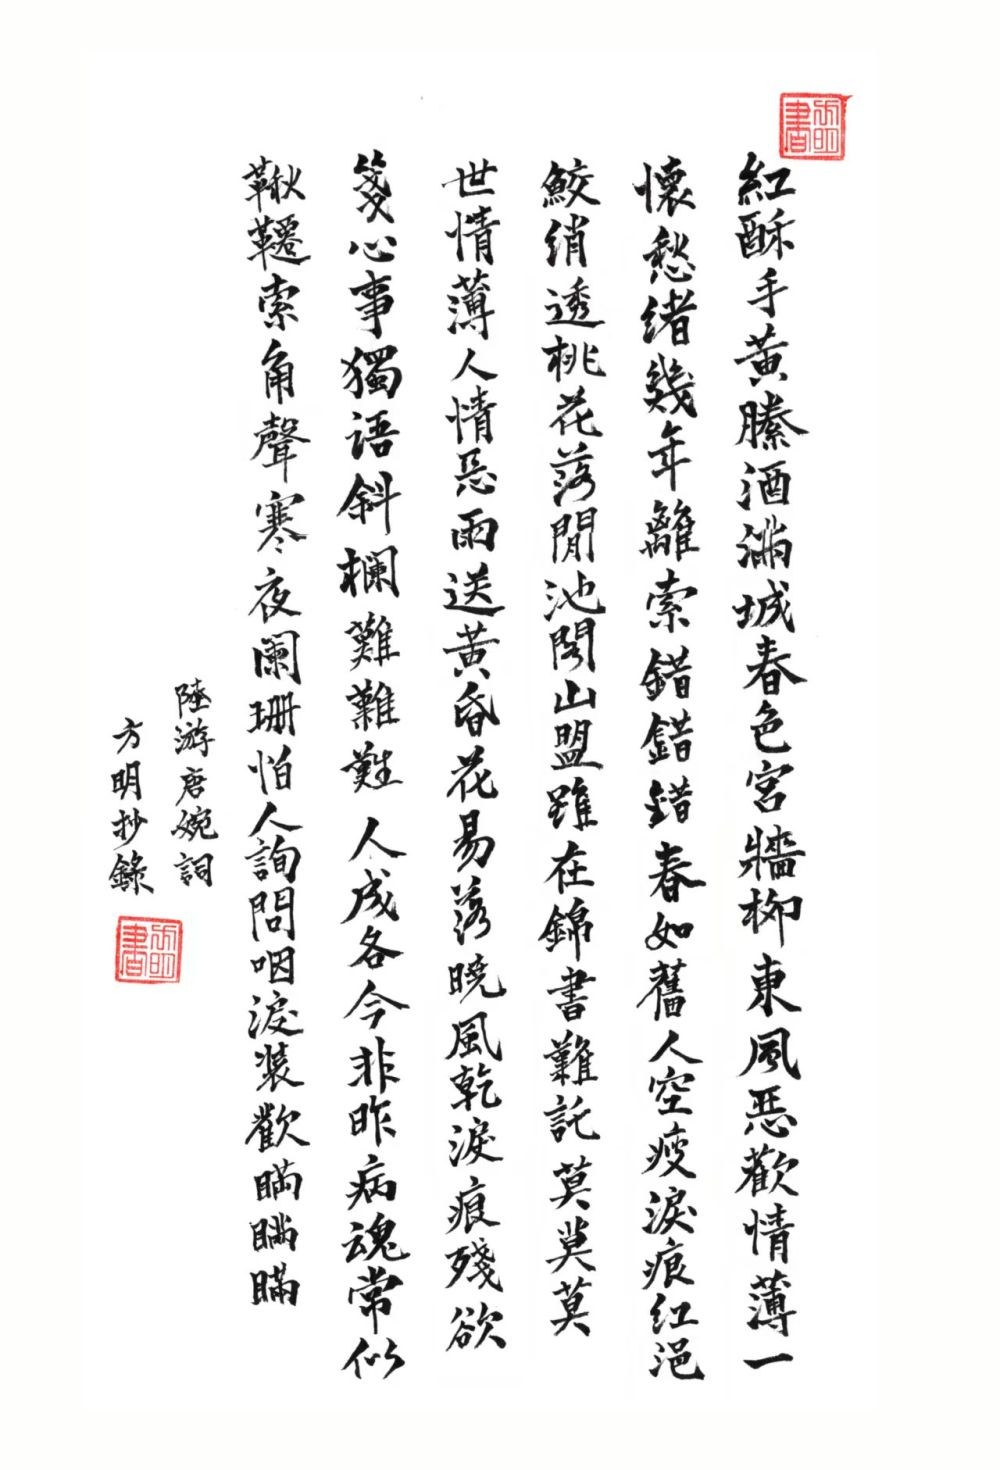 紅酥手黃縢酒滿城春色宮牆柳東風惡歡情薄一
懷愁緒幾年離索錯錯錯春如舊人空瘦淚痕紅浥
鮫綃透桃花落閒池閣山盟雖在錦書難託莫莫莫
世情薄人情惡雨送黃昏花易落曉風乾淚痕殘欲
箋心事獨語斜欄難難難人成各今非昨病魂常似
鞦韆索角聲寒夜闌珊怕人詢問咽淚裝歡瞞瞞瞞
陸游唐婉詞
方明抄錄